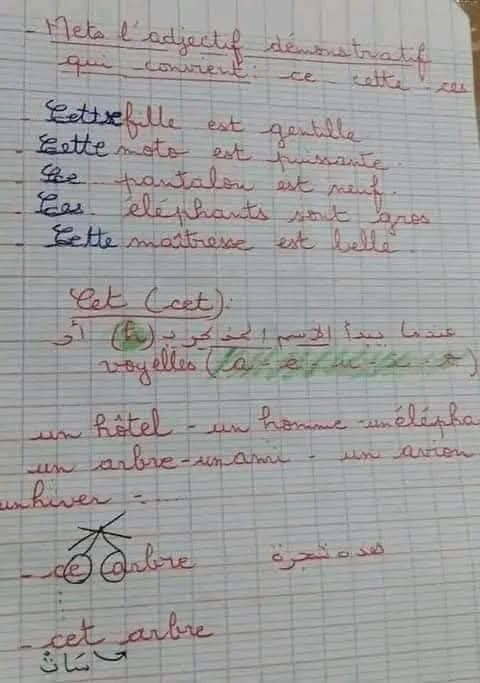 - Mets l'adjectif démonstratif
qui convient : ce - cette - ces
- Cette fille est gentille
- Cette moto est puissante.
- Ce pantalon est neuf.
- Ces éléphants sont gros
- Cette maîtresse est belle.
Cet (cet):
عندما يبدأ الاسم المذكر بـ (h) أو
voyelles (a - e - u - i - o)
un hôtel - un homme - un élépha
un arbre - un ami - un avion
un hiver - ....
- ce arbre هده شجرة
- cet arbre
سَاتْ